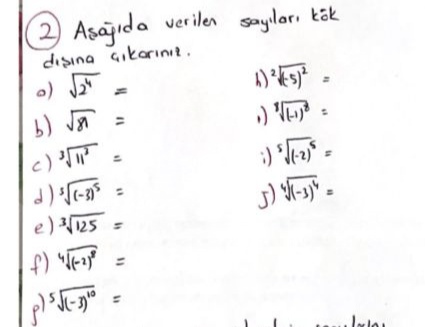 2 Aşağıda verilen sayıları kök
dışına çıkarınız.
a) √2⁴ =
b) √81 =
c) ³√11³ =
d) ⁵√(-3)⁵ =
e) ³√125 =
f) ⁴√(-2)⁸ =
g) ⁵√(-3)¹⁰ =
h) ²√(-5)² =
ı) ⁸√(-1)⁸ =
i) ⁵√(-2)⁵ =
j) ⁴√(-3)⁴ =